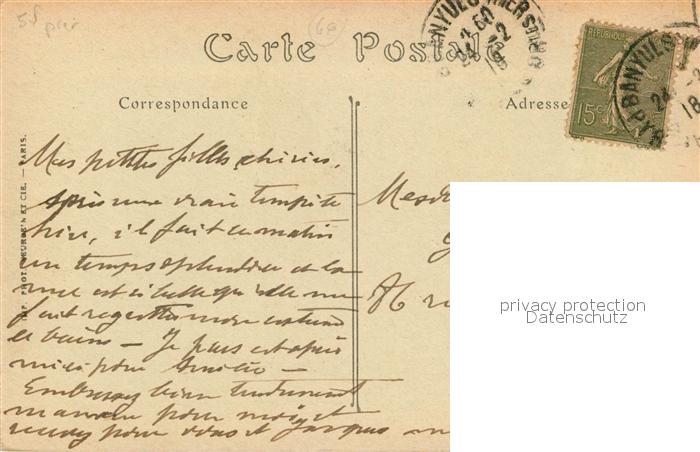 58 pair
68
Carte Postale
BANYULS S MER
60
12
REPUBLIQUE
15c
BANYULS
24
18
Correspondance
Adresse
IMP. PHOT. NEURDEIN ET CIE. — PARIS.
Mes petites filles chéries,
après une vraie tempête
hier, il fait ce matin
un temps splendide et la
mer est si belle qu'elle me
fait regretter mon costume
de bains — Je pars cet après
midi pour
Embrassez bien tendrement
maman pour moi et
recevez pour vous et Jacques
Mesd
privacy protection
Datenschutz